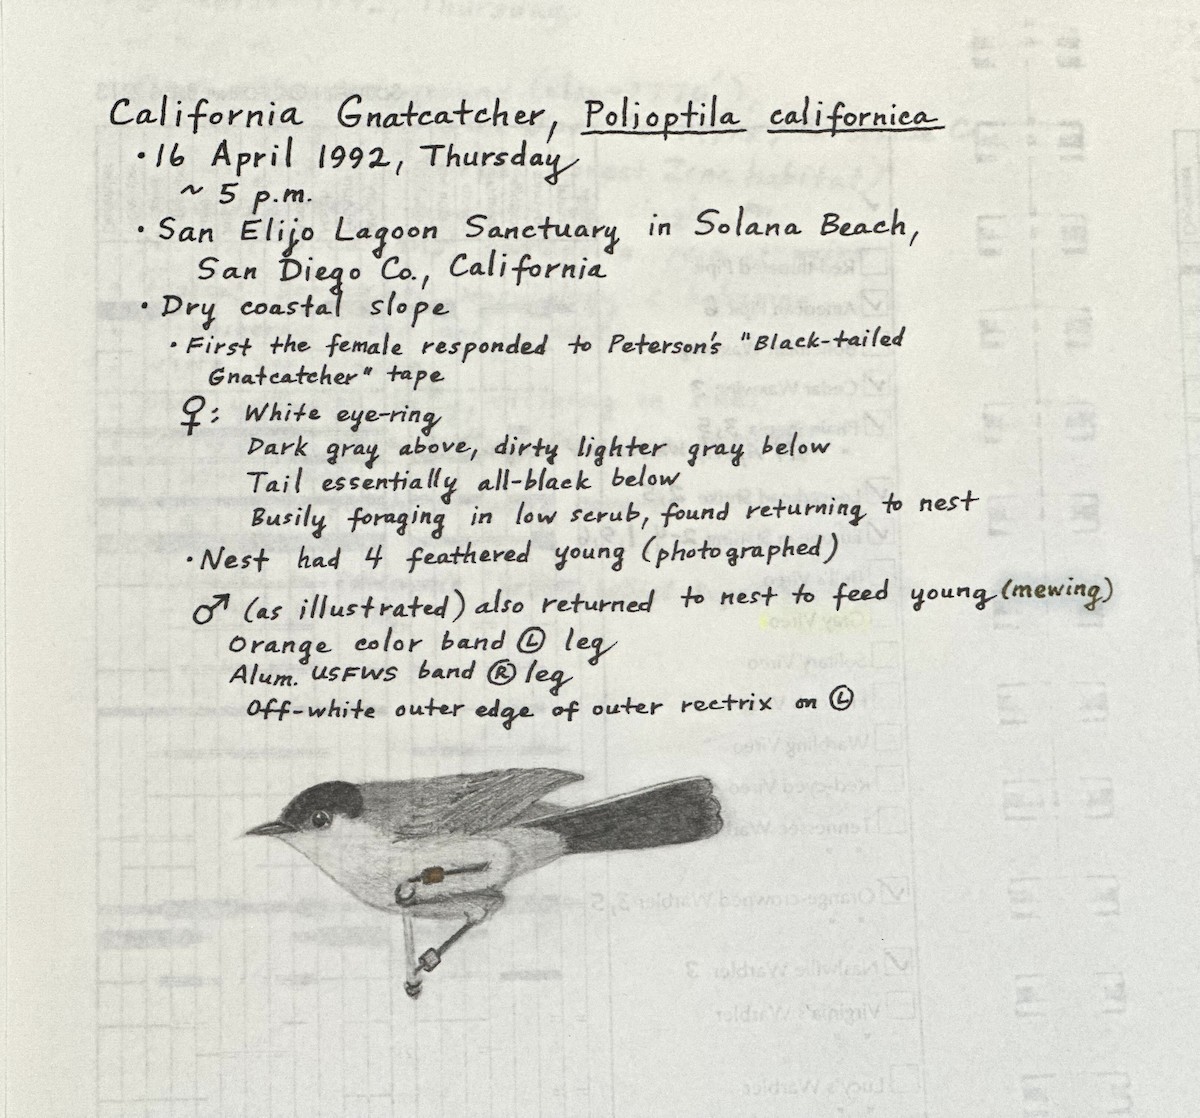 California Gnatcatcher, Polioptila californica
• 16 April 1992, Thursday
~ 5 p.m.
• San Elijo Lagoon Sanctuary in Solana Beach,
San Diego Co., California
• Dry coastal slope
• First the female responded to Peterson's "Black-tailed
Gnatcatcher" tape
♀: White eye-ring
Dark gray above, dirty lighter gray below
Tail essentially all-black below
Busily foraging in low scrub, found returning to nest
• Nest had 4 feathered young (photographed)
♂ (as illustrated) also returned to nest to feed young (mewing)
Orange color band Ⓛ leg
Alum. USFWS band Ⓡ leg
Off-white outer edge of outer rectrix on Ⓛ